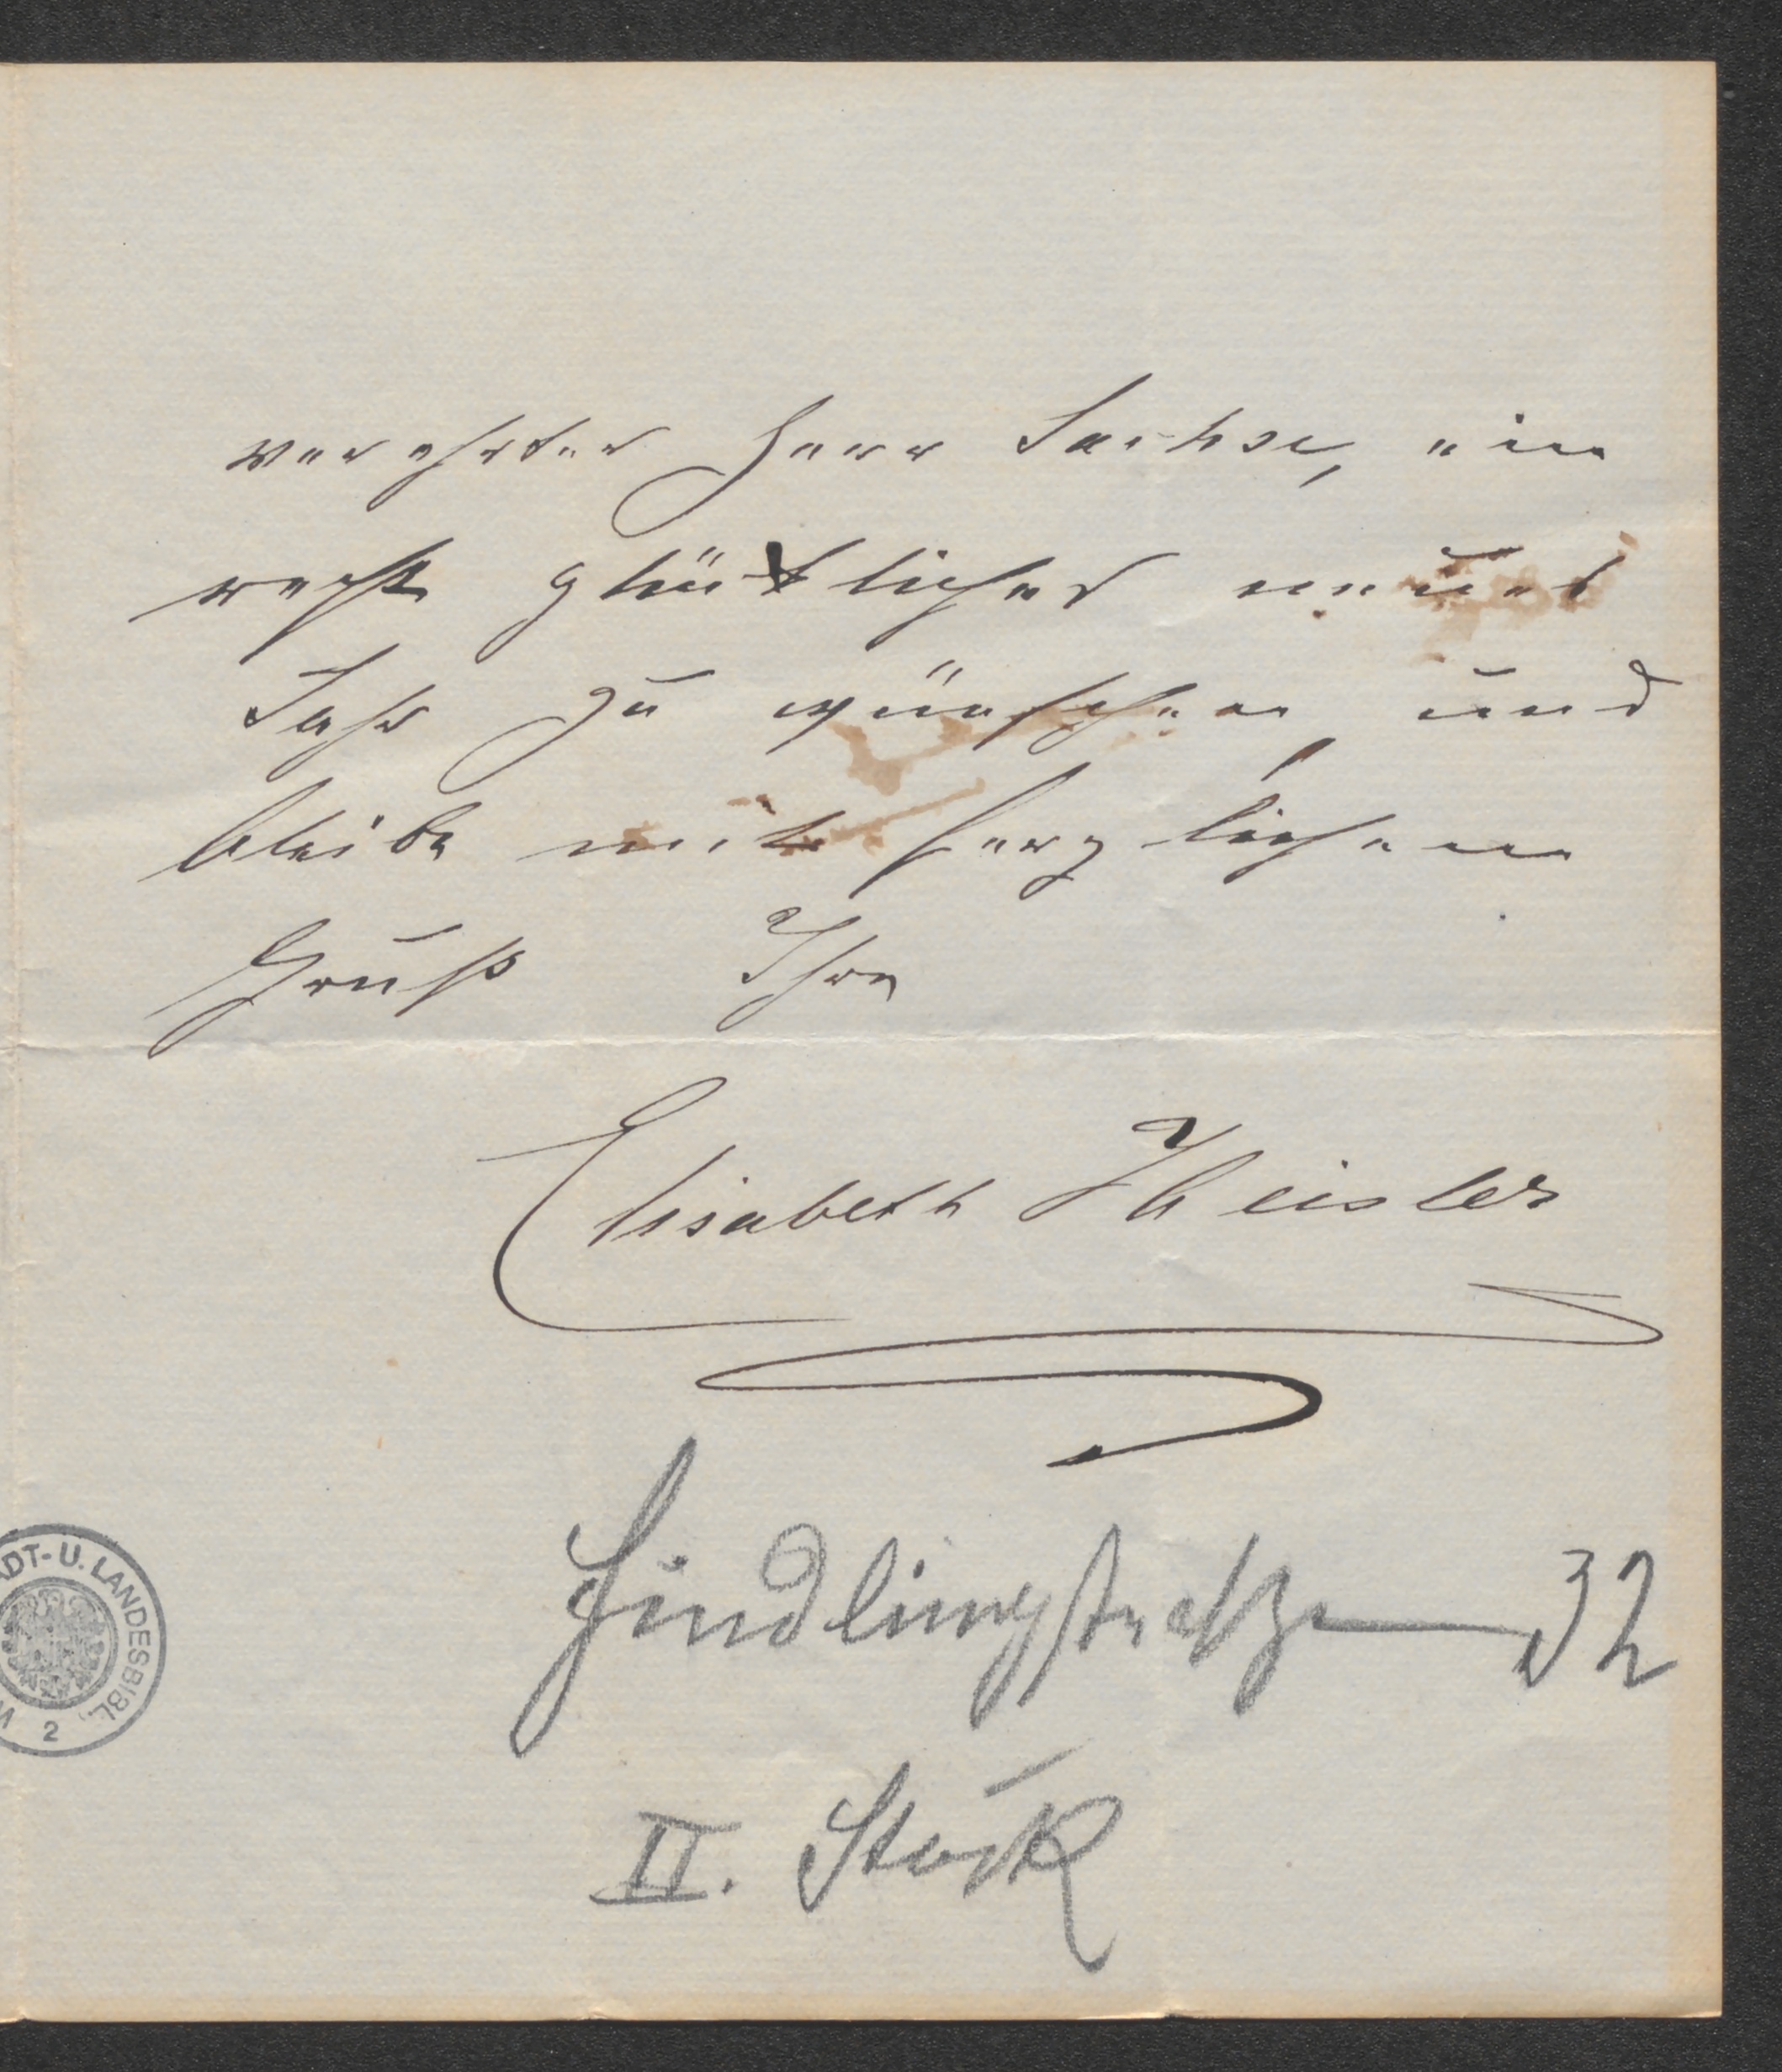 verehrter Herr Sachse, ein
recht glückliches neues
Jahr zu wünschen und
bleibe mit herzlichem
Gruß Ihre
Elisabeth
Findlingstraße 32
II. Stock
ADT- U. LANDESBIBL.
2